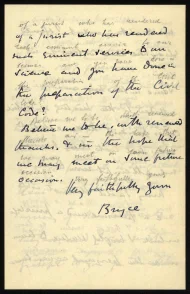 of a jurist who has rendered
such eminent services to our
science and you have done in
the preparation of the Civil
Code?
Believe me to be, with renewed
thanks, & in the hope that
we may meet on some future
occasion,
Very faithfully yours
Bryce